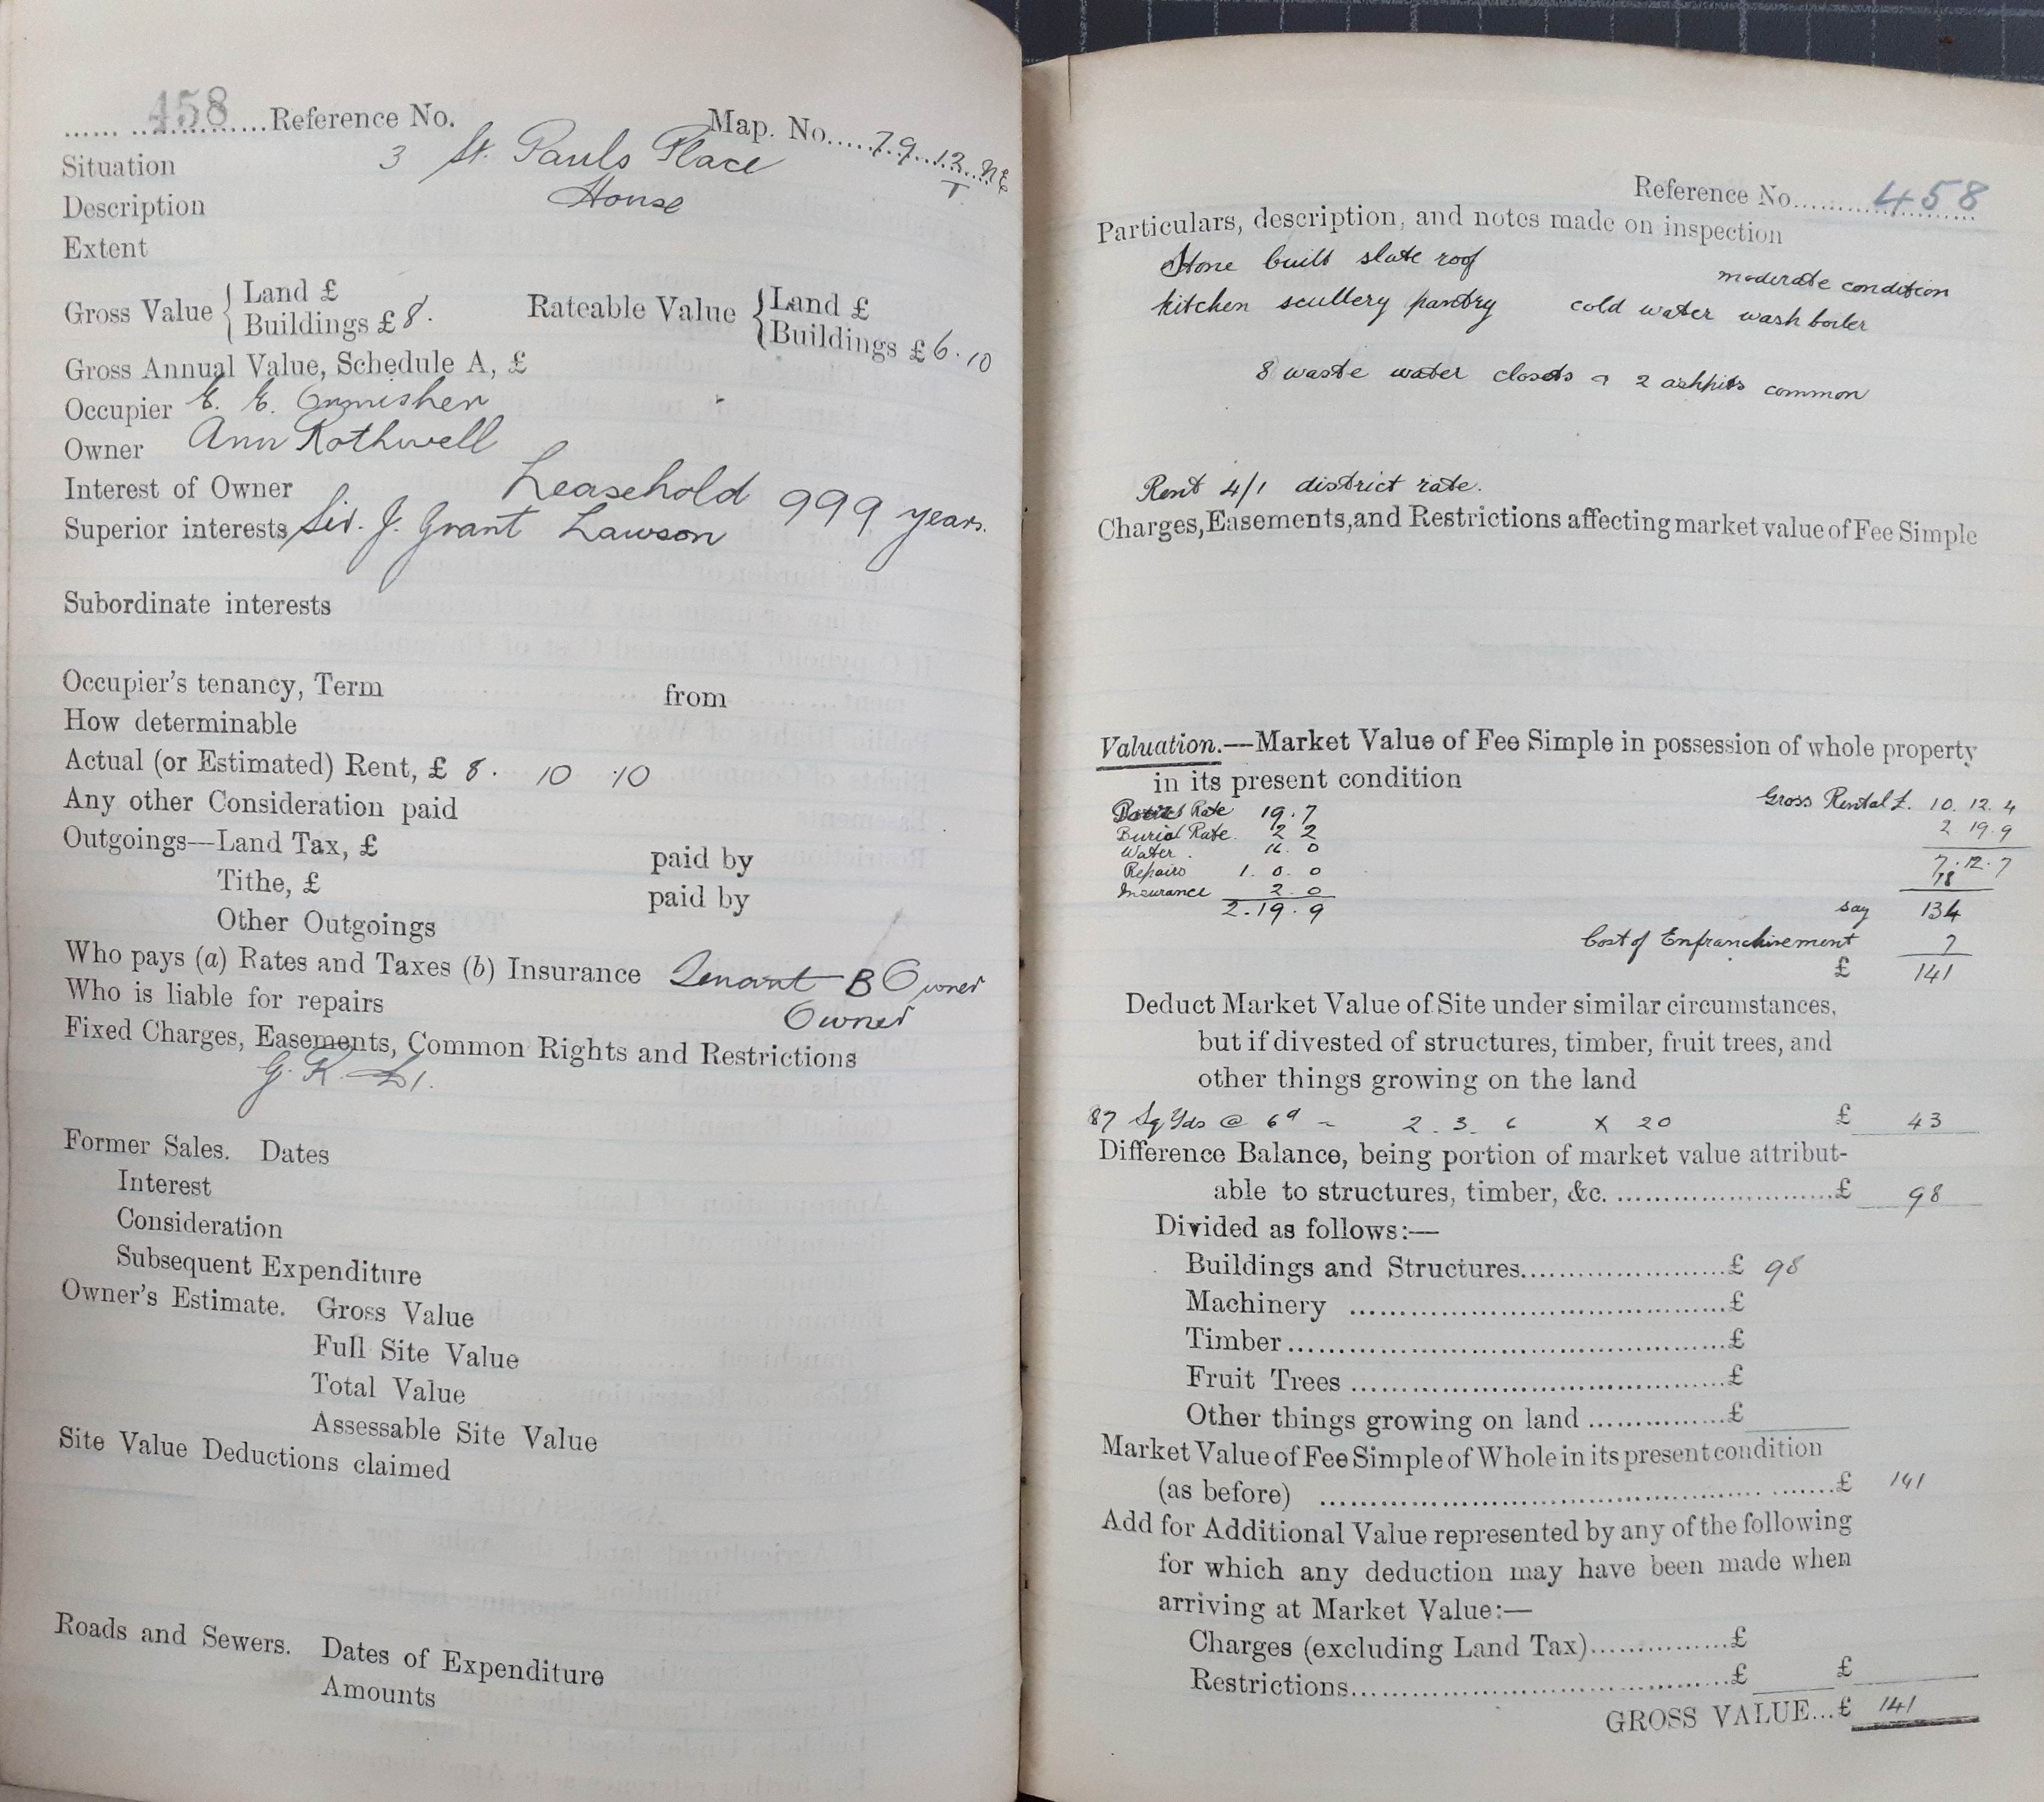 458 Reference No. Map. No. 79.12 NE
T.
Situation 3 St. Pauls Place
Description House
Extent
Gross Value { Land £
Buildings £ 8.
Rateable Value { Land £
Buildings £ 6.10
Gross Annual Value, Schedule A, £
Occupier E. E. Ormisher
Owner Ann Rothwell
Interest of Owner Leasehold 999 years.
Superior interests Sir. J. Grant Lawson
Subordinate interests
Occupier's tenancy, Term from
How determinable
Actual (or Estimated) Rent, £ 8. 10 .10
Any other Consideration paid
Outgoings—Land Tax, £ paid by
Tithe, £ paid by
Other Outgoings
Who pays (a) Rates and Taxes (b) Insurance Tenant B Owner
Who is liable for repairs Owner
Fixed Charges, Easements, Common Rights and Restrictions
G. R. £1.
Former Sales. Dates
Interest
Consideration
Subsequent Expenditure
Owner's Estimate. Gross Value
Full Site Value
Total Value
Assessable Site Value
Site Value Deductions claimed
Roads and Sewers. Dates of Expenditure
Amounts
Reference No. 458
Particulars, description, and notes made on inspection
Stone built slate roof moderate condition
kitchen scullery pantry cold water wash boiler
8 waste water closets & 2 ashpits common
Rent 4/1 district rate.
Charges, Easements, and Restrictions affecting market value of Fee Simple
Valuation.—Market Value of Fee Simple in possession of whole property
in its present condition
Rate 19.7 Gross Rental £. 10.12.4
Burial Rate. 2 2 2 19.9
Water. 16.0 7.12.7
Repairs 1.0.0 18
Insurance 2.0
2.19.9 say 134
Cost of Enfranchisement 7
£ 141
Deduct Market Value of Site under similar circumstances,
but if divested of structures, timber, fruit trees, and
other things growing on the land
87 Sq Yds @ 6d - 2.3.6 x 20 £ 43
Difference Balance, being portion of market value attribut-
able to structures, timber, &c. £ 98
Divided as follows:—
Buildings and Structures £ 98
Machinery £
Timber £
Fruit Trees £
Other things growing on land £
Market Value of Fee Simple of Whole in its present condition
(as before) £ 141
Add for Additional Value represented by any of the following
for which any deduction may have been made when
arriving at Market Value:—
Charges (excluding Land Tax) £
Restrictions £ £
GROSS VALUE...£ 141